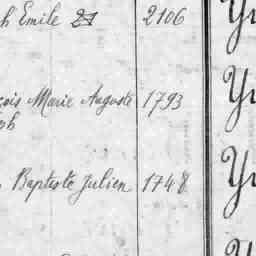 h Emile 21 2106
çois Marie Auguste 1793
ph
Baptiste Julien 1748